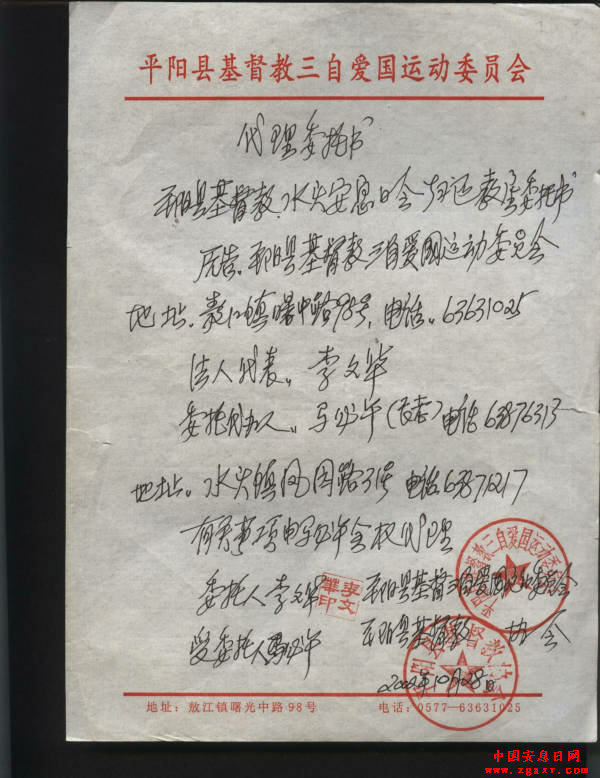 平阳县基督教三自爱国运动委员会
代理委托书
平阳县基督教水头安息日会 教产委托书
原告.平阳县基督教三自爱国运动委员会
地址.敖江镇曙中路98号,电话.63631025
法人代表.李文华
委托代办人.马 (长老)电话63876313
地址.水头镇凤 路31号 电话63871217
有关事项由马 全权代理
委托人李文华 平阳县基督教三自爱国运动委员会
受委托人马 平阳县基督教 协会
李文華印
2002年10月28日
地址:敖江镇曙光中路98号 电话:0577—63631025
中国安息日网
www.zgaxr.com